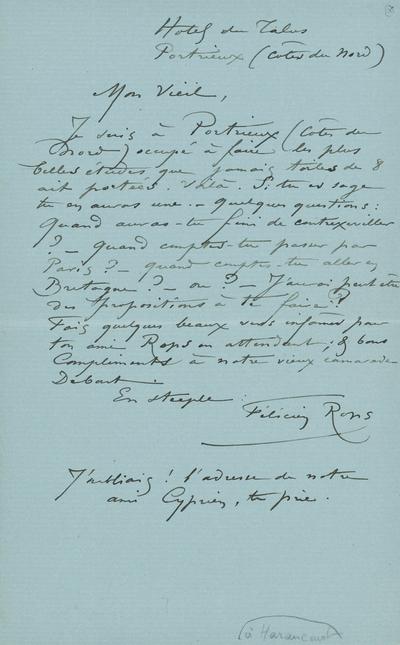 Hotel du Talus
Portrieux (Côtes du Nord)
Mon Vieil,
Je suis à Portrieux (Côtes du
Nord) occupé à faire les plus
belles études que jamais toiles de 8
ait portées. Voilà. Si tu es sage
tu en auras une. - Quelques questions:
Quand auras-tu fini de contrexeviller
? - quand comptes-tu passer par
Paris? - quand comptes-tu aller en
Bretagne? - où? - J'aurai peut être
des propositions à te faire?
Fais quelques beaux vers infâmes pour
ton ami Rops en attendant. & bons
Compliments à notre vieux camarade
Debart
En steeple.
Félicien Rops
J'oubliais! l'adresse de notre
ami Cyprien, te prie.
(à Haraucourt